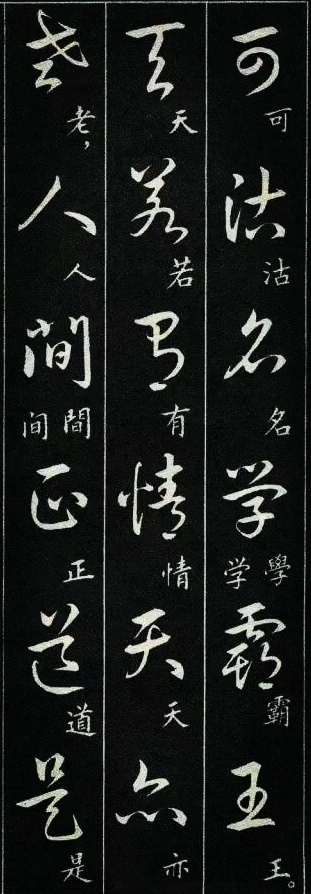 可沽名学霸王
可沽名學学霸王。
天若有情天亦
天若有情天亦
老人間正道是
老，人間间正道是